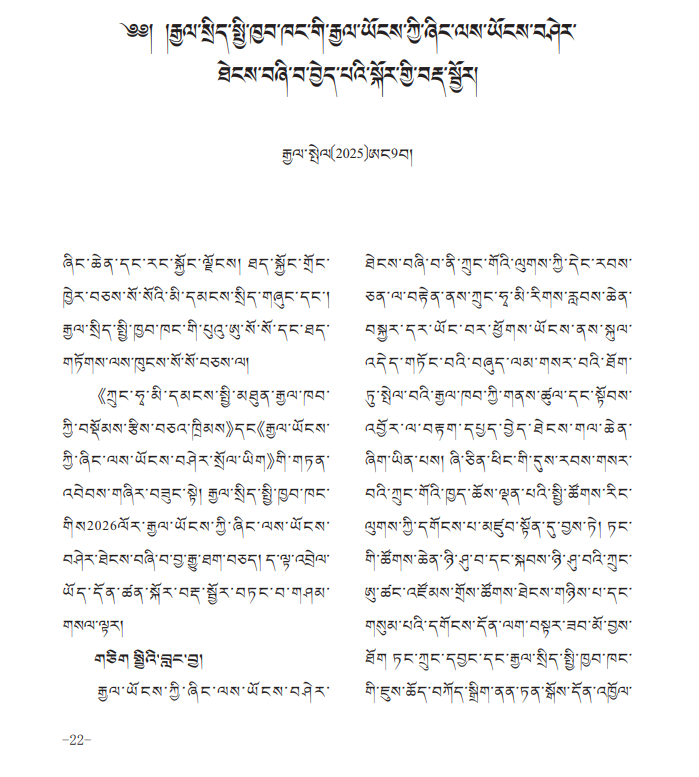 ༄༅། །རྒྱལ་སྲིད་སྤྱི་ཁྱབ་ཁང་གི་རྒྱལ་ཡོངས་ཀྱི་ཞིང་ལས་ཡོངས་བཤེར་
ཐེངས་བཞི་བ་བྱེད་པའི་སྐོར་གྱི་བརྡ་སྦྱོར།
རྒྱལ་སྤེལ(2025)ཨང9བ།
ཞིང་ཆེན་དང་རང་སྐྱོང་ལྗོངས། ཐད་སྐྱོང་གྲོང་
ཁྱེར་བཅས་སོ་སོའི་མི་དམངས་སྲིད་གཞུང་དང་།
རྒྱལ་སྲིད་སྤྱི་ཁྱབ་ཁང་གི་པུའུ་ཨུ་སོ་སོ་དང་ཐད་
གཏོགས་ལས་ཁུངས་སོ་སོ་བཅས་ལ།
《ཀྲུང་ཧྭ་མི་དམངས་སྤྱི་མཐུན་རྒྱལ་ཁབ་
ཀྱི་བསྡོམས་རྩིས་བཅའ་ཁྲིམས》དང《རྒྱལ་ཡོངས་
ཀྱི་ཞིང་ལས་ཡོངས་བཤེར་སྲོལ་ཡིག》གི་གཏན་
འབེབས་གཞིར་བཟུང་སྟེ། རྒྱལ་སྲིད་སྤྱི་ཁྱབ་ཁང་
གིས2026ལོར་རྒྱལ་ཡོངས་ཀྱི་ཞིང་ལས་ཡོངས་
བཤེར་ཐེངས་བཞི་བ་བྱ་རྒྱུ་ཐག་བཅད། ད་ལྟ་འབྲེལ་
ཡོད་དོན་ཚན་སྐོར་བརྡ་སྦྱོར་བཏང་བ་གཤམ་
གསལ་ལྟར།
གཅིག སྤྱིའི་བླང་བྱ།
རྒྱལ་ཡོངས་ཀྱི་ཞིང་ལས་ཡོངས་བཤེར་
ཐེངས་བཞི་བ་ནི་ཀྲུང་གོའི་ལུགས་ཀྱི་དེང་རབས་
ཅན་ལ་བརྟེན་ནས་ཀྲུང་ཧྭ་མི་རིགས་རླབས་ཆེན་
བསྐྱར་དར་ཡོང་བར་ཕྱོགས་ཡོངས་ནས་སྐུལ་
འདེད་གཏོང་བའི་བཞུད་ལམ་གསར་བའི་ཐོག་
ཏུ་སྤེལ་བའི་རྒྱལ་ཁབ་ཀྱི་གནས་ཚུལ་དང་སྟོབས་
འབྱོར་ལ་བརྟག་དཔྱད་བྱེད་ཐེངས་གལ་ཆེན་
ཞིག་ཡིན་པས། ཞི་ཅིན་ཕིང་གི་དུས་རབས་གསར་
བའི་ཀྲུང་གོའི་ཁྱད་ཆོས་ལྡན་པའི་སྤྱི་ཚོགས་རིང་
ལུགས་ཀྱི་དགོངས་པ་མཛུབ་སྟོན་དུ་བྱས་ཏེ། ཏང་
གི་ཚོགས་ཆེན་ཉི་ཤུ་བ་དང་སྐབས་ཉི་ཤུ་བའི་ཀྲུང་
ཨུ་ཚང་འཛོམས་གྲོས་ཚོགས་ཐེངས་གཉིས་པ་དང་
གསུམ་པའི་དགོངས་དོན་ལག་བསྟར་ཟབ་མོ་བྱས་
ཐོག ཏང་ཀྲུང་དབྱང་དང་རྒྱལ་སྲིད་སྤྱི་ཁྱབ་ཁང་
གི་ཇུས་ཆོད་བཀོད་སྒྲིག་ནན་ཏན་སྒོས་དོན་འཁྱོལ་
-22-